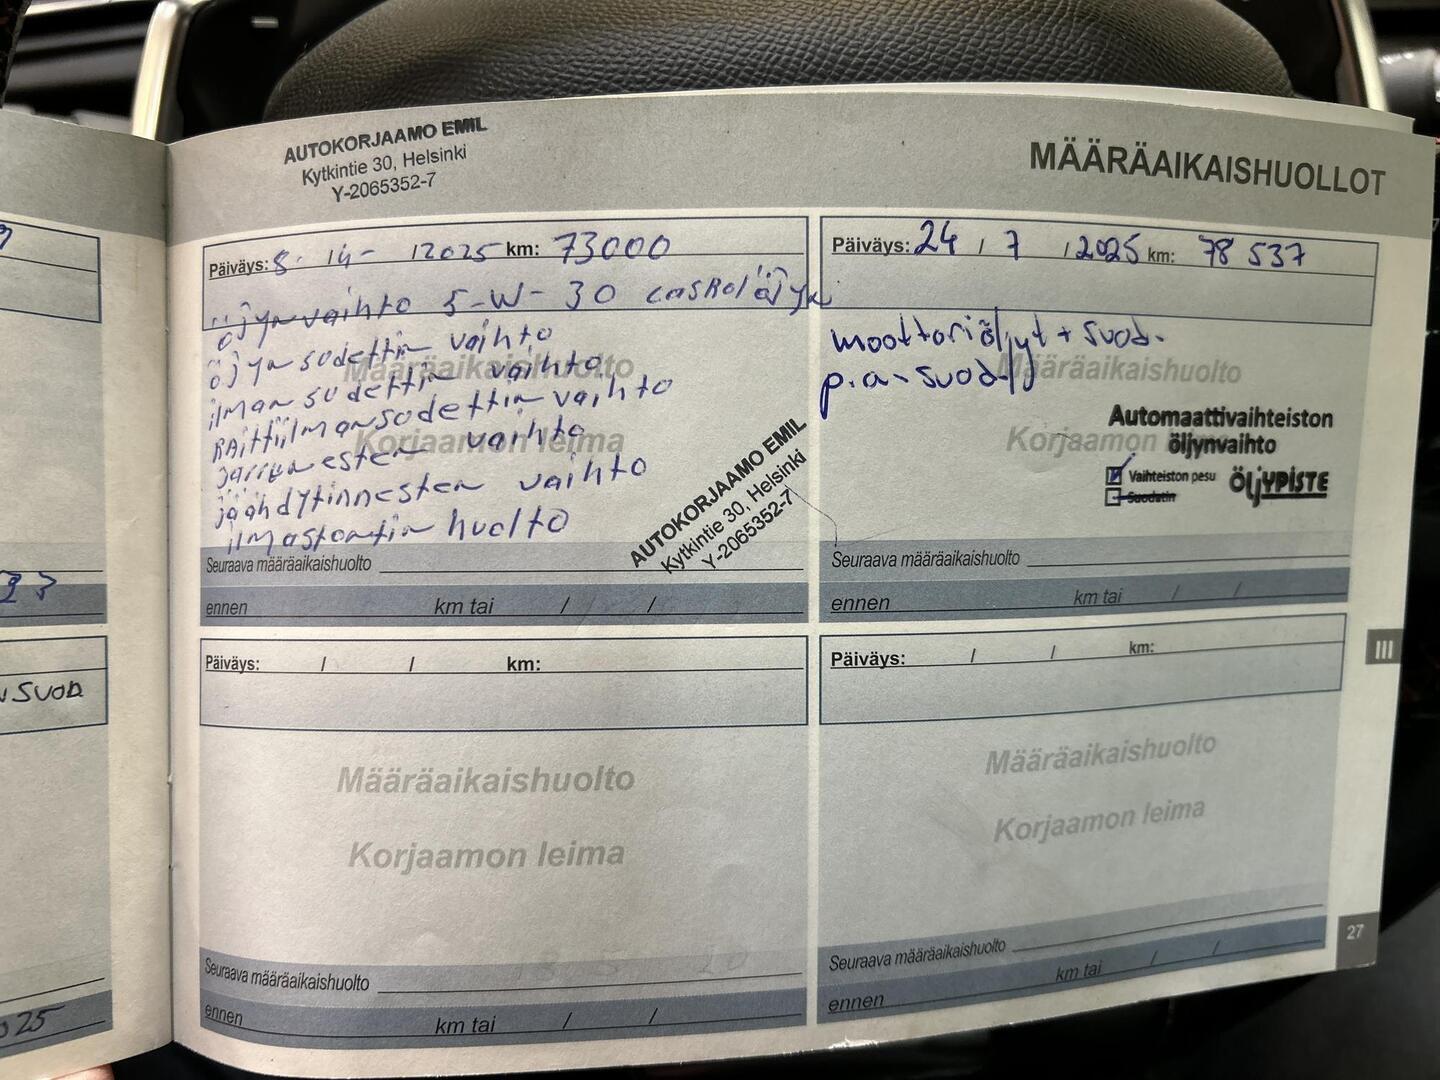 AUTOKORJAAMO EMIL
Kytkintie 30, Helsinki
Y-2065352-7
MÄÄRÄAIKAISHUOLLOT
Päiväys: 8. /4- /2025 km: 73000
öljynvaihto 5-W-30
öljynsudettin vaihto
ilmansudettin vaihto
Raittiilmansudettin vaihto
Jarrunesten vaihto
jäähdytinnesten vaihto
ilmastontin huolto
Määräaikaishuolto
Korjaamon leima
AUTOKORJAAMO EMIL
Kytkintie 30, Helsinki
Y-2065352-7
Seuraava määräaikaishuolto
ennen km tai / /
Päiväys: 24 / 7 /2025 km: 78 537
moottoriöljyt + suod.
p.a-suod.
Määräaikaishuolto
Korjaamon leima
Automaattivaihteiston
öljynvaihto
Vaihteiston pesu
Suodatin
ÖLJYPISTE
Seuraava määräaikaishuolto
ennen km tai / /
Päiväys: / / km:
Määräaikaishuolto
Korjaamon leima
Seuraava määräaikaishuolto
ennen km tai / /
Päiväys: / / km:
Määräaikaishuolto
Korjaamon leima
Seuraava määräaikaishuolto
ennen km tai / /
III
27
SUOD
025